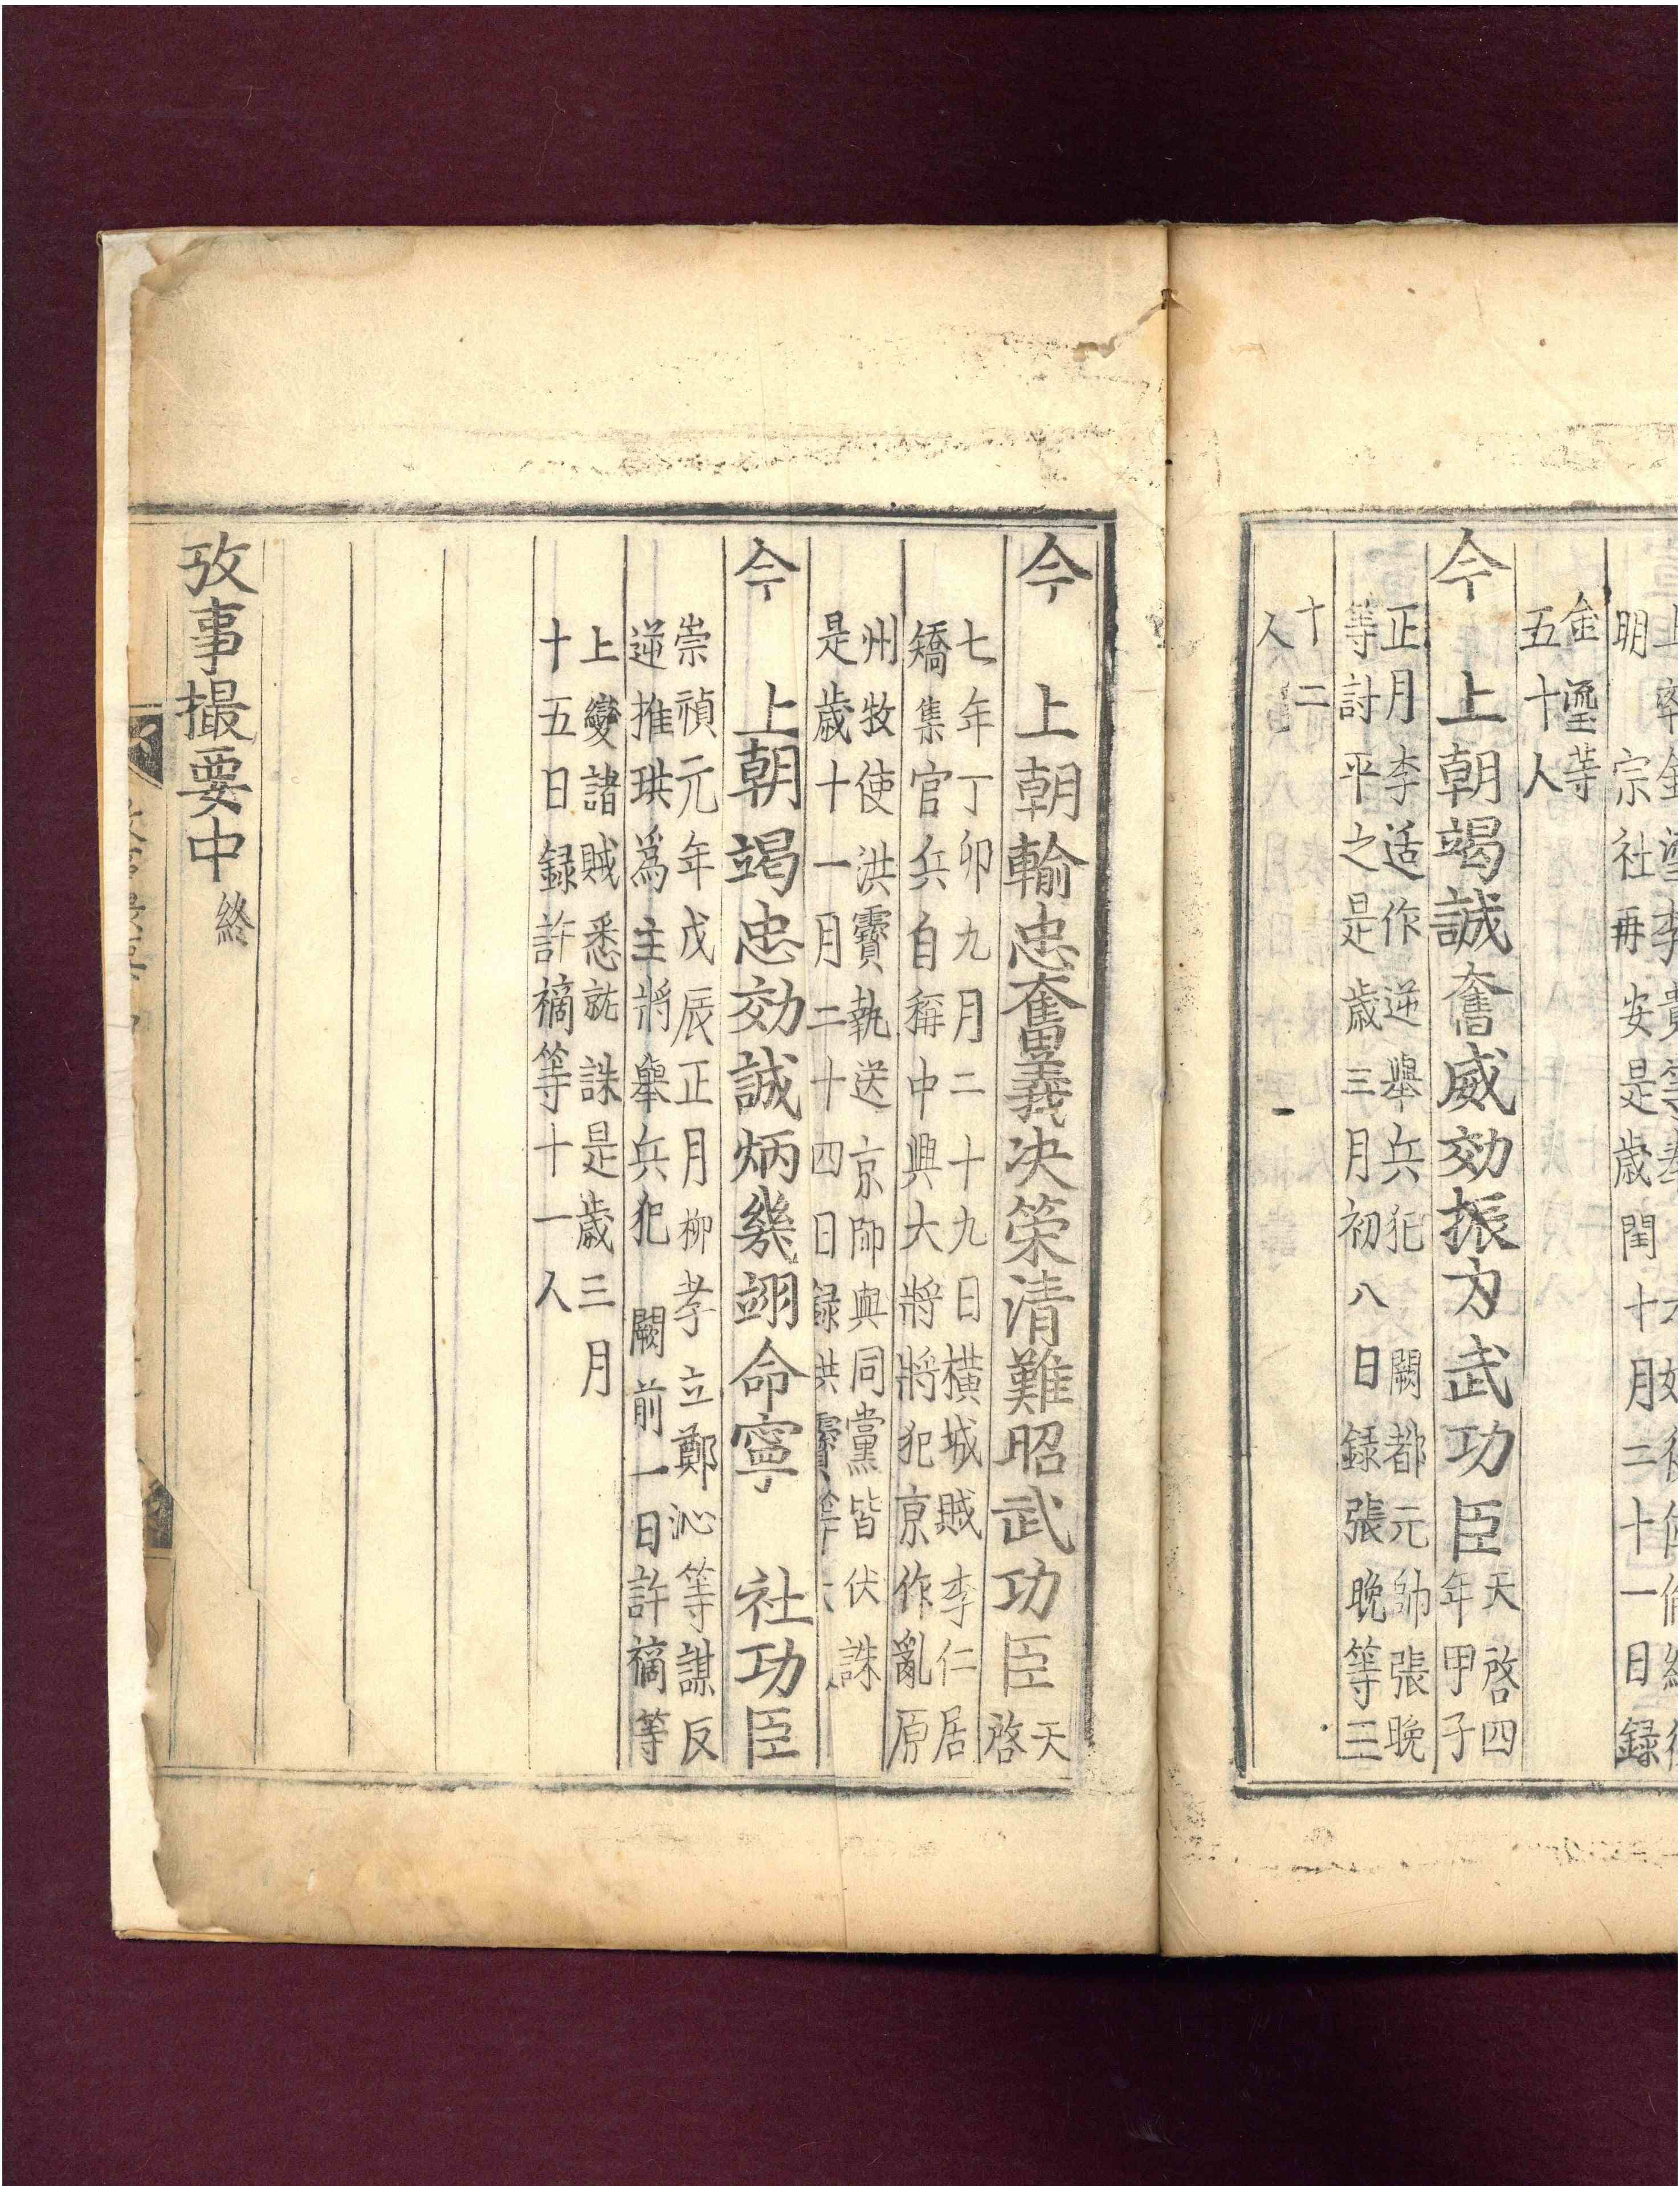 明 宗社再安是歲閏十月二十一日錄
金瑬等
五十人
今 上朝竭誠奮威効振力武功臣天啓四
年甲子
正月李适作逆舉兵犯 闕都元帥張晚
等討平之是歲三月初八日錄張晚等三
十二
人
今 上朝輸忠奮義决策清難昭武功臣天
啓
七年丁卯九月二十九日橫城賊李仁居
矯集官兵自稱中興大將將犯京作亂原
州牧使洪靌執送 京師與同黨皆伏誅
是歲十一月二十四日錄洪靌等
今 上朝竭忠効誠炳幾翊命寧 社功臣
崇禎元年戊辰正月柳孝立鄭沁等謀反
逆推珙爲主將舉兵犯 闕前一日許𥛚等
上變諸賊悉就誅是歲三月
十五日錄許𥛚等十一人
攷事撮要中 終